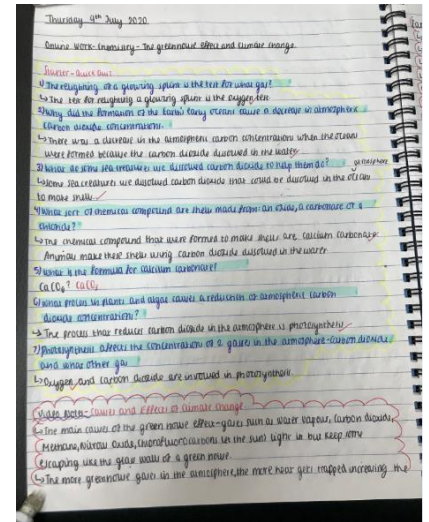 Thursday 9th July 2020
Online work - Chemistry - The greenhouse effect and climate change.
Starter - Quick Quiz
1) The relighting of a glowing splint is the test for what gas?
↳ The test for relighting a glowing splint is the oxygen test
2) Why did the formation of the Earth's early oceans cause a decrease in atmospheric
carbon dioxide concentrations.
↳ There was a decrease in the atmospheric carbon concentrations when the oceans
were formed because the carbon dioxide dissolved in the water.
3) What do some sea creatures use dissolved carbon dioxide to help them do?
↳ some sea creatures use dissolved carbon dioxide that could be dissolved in the ocean
to make shells
4) What sort of chemical compound are shells made from: an oxide, a carbonate or a
chloride?
↳ The chemical compound that were formed to make shells are calcium carbonate.
Animals make these shells using carbon dioxide dissolved in the water
5) What is the formula for calcium carbonate?
CaCO₃
6) What process in plants and algae causes a reduction of atmospheric carbon
dioxide concentration?
↳ The process that reduces carbon dioxide in the atmosphere is photosynthesis
7) Photosynthesis affects the concentration of 2 gases in the atmosphere - carbon dioxide
and what other gas
↳ Oxygen and carbon dioxide are involved in photosynthesis.
Video Notes - Causes and Effects of climate change
↳ The main causes of the green house effect - gases such as water vapour, carbon dioxide,
Methane, Nitrous Oxide, Chlorofluorocarbons let the sun light in but keep some
escaping like the glass walls of a green house.
↳ The more greenhouse gases in the atmosphere, the more heat gets trapped increasing the